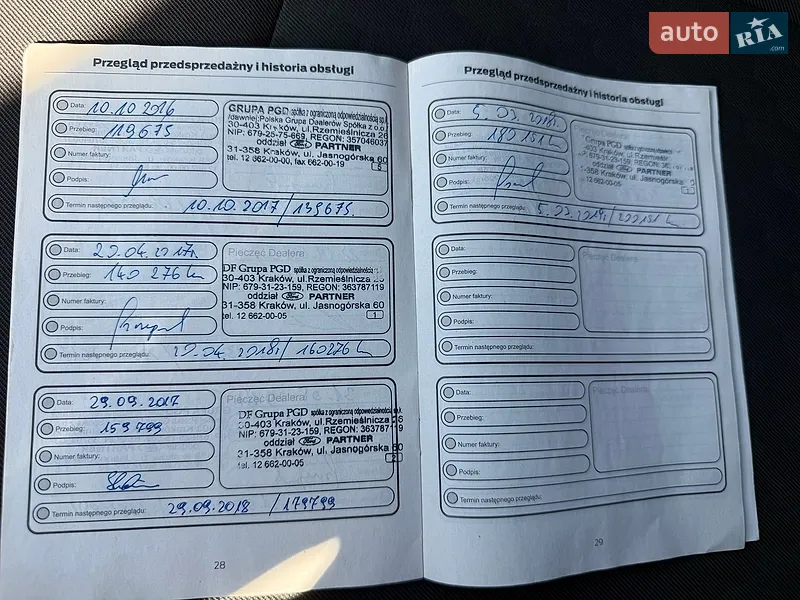 auto RIA .com
Przegląd przedsprzedażny i historia obsługi
Data: 10.10 2016
Przebieg: 119675
Numer faktury:
Podpis:
Termin następnego przeglądu: 10.10.2017/139675.
GRUPA PGD spółka z ograniczoną odpowiedzialnością sp.k.
/dawniej:Polska Grupa Dealerów Spółka z o.o./
30-403 Kraków, ul.Rzemieślnicza 26
NIP: 679-25-75-669, REGON: 357046037
oddział Ford PARTNER
31-358 Kraków, ul. Jasnogórska 60
tel. 12 662-00-00, fax 662-00-19
5
Data: 20.04.2017r
Przebieg: 140 276 km
Numer faktury:
Podpis:
Termin następnego przeglądu: 20.04.2018r/160276 km
Pieczęć Dealera
DF Grupa PGD spółka z ograniczoną odpowiedzialnością
30-403 Kraków, ul.Rzemieślnicza 26
NIP: 679-31-23-159, REGON: 363787119
oddział Ford PARTNER
31-358 Kraków, ul. Jasnogórska 60
tel. 12 662-00-05
1
Data: 29.09.2017
Przebieg: 159799
Numer faktury:
Podpis:
Termin następnego przeglądu: 29.09.2018 /179799
Pieczęć Dealera
DF Grupa PGD spółka z ograniczoną odpowiedzialnością sp.k.
30-403 Kraków, ul.Rzemieślnicza 26
NIP: 679-31-23-159, REGON: 363787119
oddział Ford PARTNER
31-358 Kraków, ul. Jasnogórska 60
tel. 12 662-00-05
2
28
Przegląd przedsprzedażny i historia obsługi
Data: 5.03.2018r.
Przebieg: 180151 km
Numer faktury:
Podpis:
Termin następnego przeglądu: 5.03.2019r/200151 km
Grupa PGD
403 Kraków, ul.Rzemieślnicza
679-31-23-159, REGON:
oddział Ford PARTNER
358 Kraków, ul. Jasnogórska
12 662-00-05
1
Data:
Przebieg:
Numer faktury:
Podpis:
Termin następnego przeglądu:
Pieczęć Dealera
Data:
Przebieg:
Numer faktury:
Podpis:
Termin następnego przeglądu:
Pieczęć Dealera
29